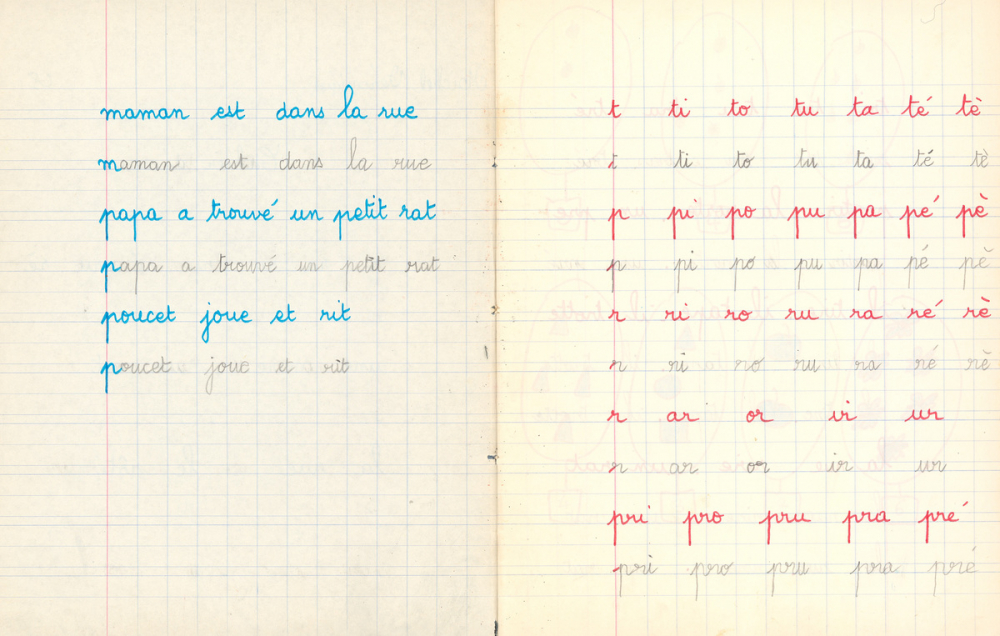 maman est dans la rue
maman est dans la rue
papa a trouvé un petit rat
papa a trouvé un petit rat
poucet joue et rit
poucet joue et rit
t ti to tu ta té tè
t ti to tu ta té tè
p pi po pu pa pé pè
p pi po pu pa pé pè
r ri ro ru ra ré rè
r ri ro ru ra ré rè
r ar or ir ur
r ar or ir ur
pri pro pru pra pré
pri pro pru pra pré